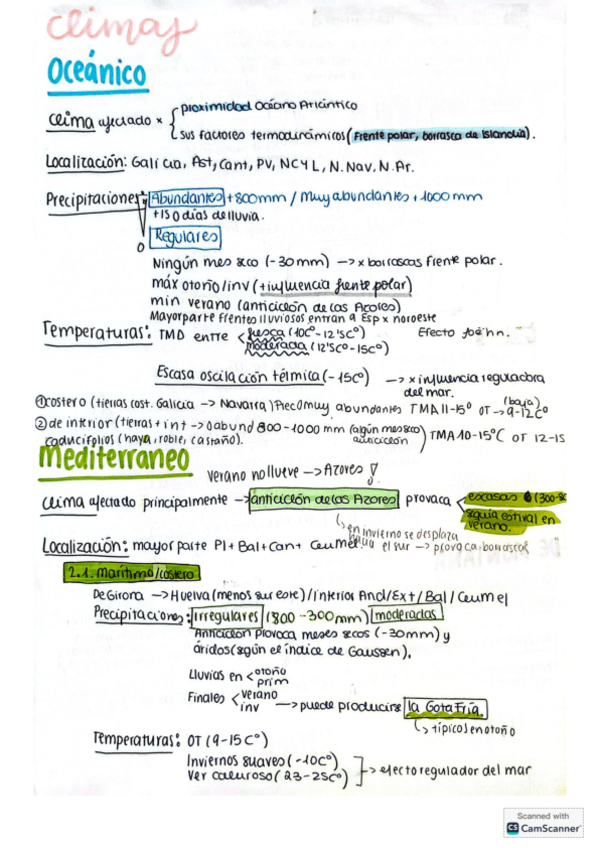 climas
Oceánico
clima afectado x { proximidad Océano Atlántico
sus factores termodinámicos (Frente polar, borrasca de Islandia).
Localización: Galicia, Ast, Cant, PV, NCYL, N.Nav, N.Ar.
Precipitaciones: Abundantes +800mm / Muy abundantes +1000mm
+150 días de lluvia.
Regulares
Ningún mes seco (-30mm) → x borrascas frente polar.
máx otoño/inv (+influencia frente polar)
min verano (anticiclón de las Azores)
Mayor parte frentes lluviosos entran a Esp x noroeste
Temperaturas: TMD entre < fresca (10Cº-12'5Cº) Efecto föehn.
moderada (12'5Cº-15Cº)
Escasa oscilación térmica (-15Cº) → x influencia reguladora
del mar.
① costero (tierras cost. Galicia → Navarra) Preco muy abundantes TMA 11-15º OT → 9-12Cº (baja)
② de interior (tierras + int → abund 800-1000mm (algún mes seco) TMA 10-15ºC OT 12-15
anticiclón
caducifolios (haya, roble, castaño).
Mediterraneo
verano no llueve → Azores !
clima afectado principalmente → anticiclón de las Azores provoca < escasas (300-80
sequía estival en
verano.
↳ en invierno se desplaza
hacia el sur → provoca borrascas
Localización: mayor parte PI + Bal + Can + Ceumel.
2.1. Marítimo/costero
De Girona → Huelva (menos sur este) / interior And/Ext/Bal/Ceumel
Precipitaciones: Irregulares (800-300mm) moderadas
Anticiclón provoca meses secos (-30mm) y
áridos (según el índice de Gaussen).
Lluvias en < otoño
prim
Finales < verano
inv → puede producirse la Gota Fría.
↳ típicos en otoño
Temperaturas: OT (9-15Cº)
Inviernos suaves (-10Cº)
Ver caluroso (23-25Cº) ] → efecto regulador del mar
Scanned with
CS CamScanner